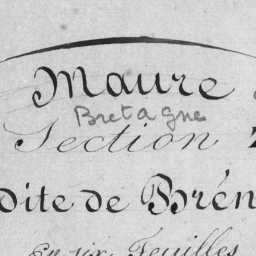 Maure
Bretagne
Section
dite de Brén
En six Feuilles